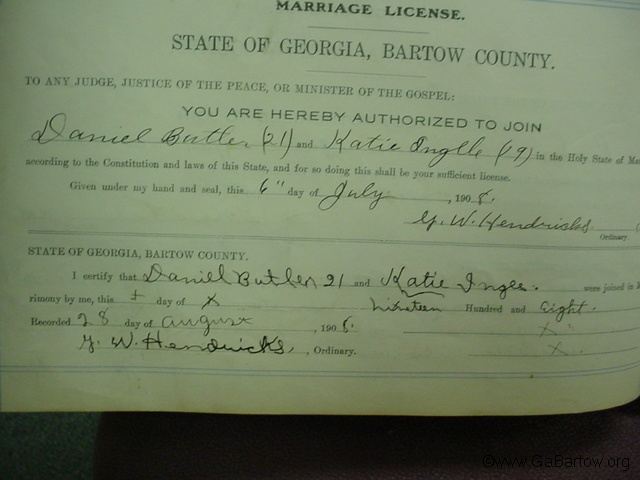 MARRIAGE LICENSE.
STATE OF GEORGIA, BARTOW COUNTY.
TO ANY JUDGE, JUSTICE OF THE PEACE, OR MINISTER OF THE GOSPEL:
YOU ARE HEREBY AUTHORIZED TO JOIN
Daniel Butler (21) and Katie Ingle (19) in the Holy State of Mat
according to the Constitution and laws of this State, and for so doing this shall be your sufficient license.
Given under my hand and seal, this 6" day of July, 1908.
G. W. Hendricks
Ordinary.
STATE OF GEORGIA, BARTOW COUNTY.
I certify that Daniel Butler 21 and Katie Ingle. were joined in
rimony by me, this + day of x Nineteen Hundred and Eight.
Recorded 28 day of August, 1908. x
G. W. Hendricks, Ordinary. x
©www.GaBartow.org